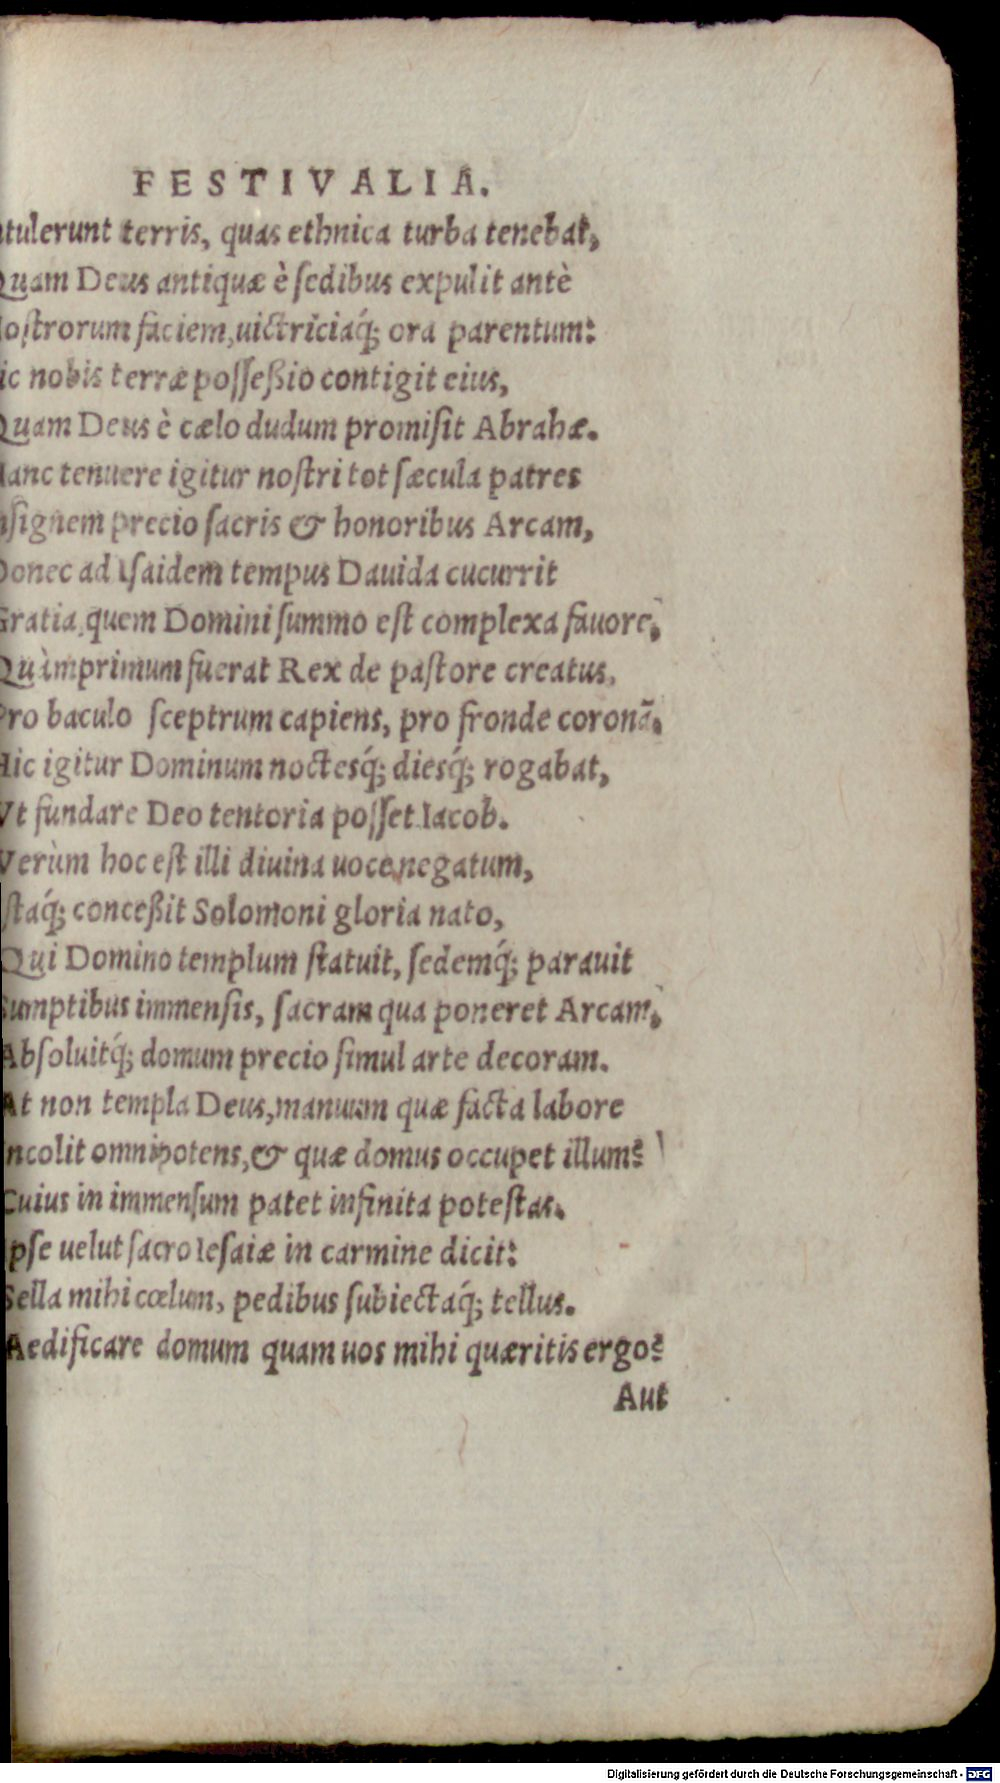 FESTIVALIA.
tulerunt terris, quas ethnica turba tenebat,
Quam Deus antiquæ è sedibus expulit antè
ostrorum faciem, uictriciaq́; ora parentum:
ic nobis terræ possessio contigit eius,
Quam Deus è cælo dudum promisit Abrahæ.
anc tenuere igitur nostri tot sæcula patres
nsignem precio sacris & honoribus Arcam,
Donec ad Isaidem tempus Dauida cucurrit
Gratia, quem Domini summo est complexa fauore,
Quàmprimum fuerat Rex de pastore creatus,
Pro baculo sceptrum capiens, pro fronde coronã.
Hic igitur Dominum noctesq́; diesq́; rogabat,
Vt fundare Deo tentoria posset Iacob.
Verùm hoc est illi diuina uoce negatum,
staq́; concessit Solomoni gloria nato,
Qui Domino templum statuit, sedemq́; parauit
Sumptibus immensis, sacram qua poneret Arcam,
Absoluitq́; domum precio simul arte decoram.
At non templa Deus, manuum quæ facta labore
Incolit omnipotens, & quæ domus occupet illum?
Cuius in immensum patet infinita potestas.
Ipse uelut sacro Iesaiæ in carmine dicit:
Sella mihi cœlum, pedibus subiectaq́; tellus.
Aedificare domum quam uos mihi quæritis ergo?
Aut
Digitalisierung gefördert durch die Deutsche Forschungsgemeinschaft - DFG